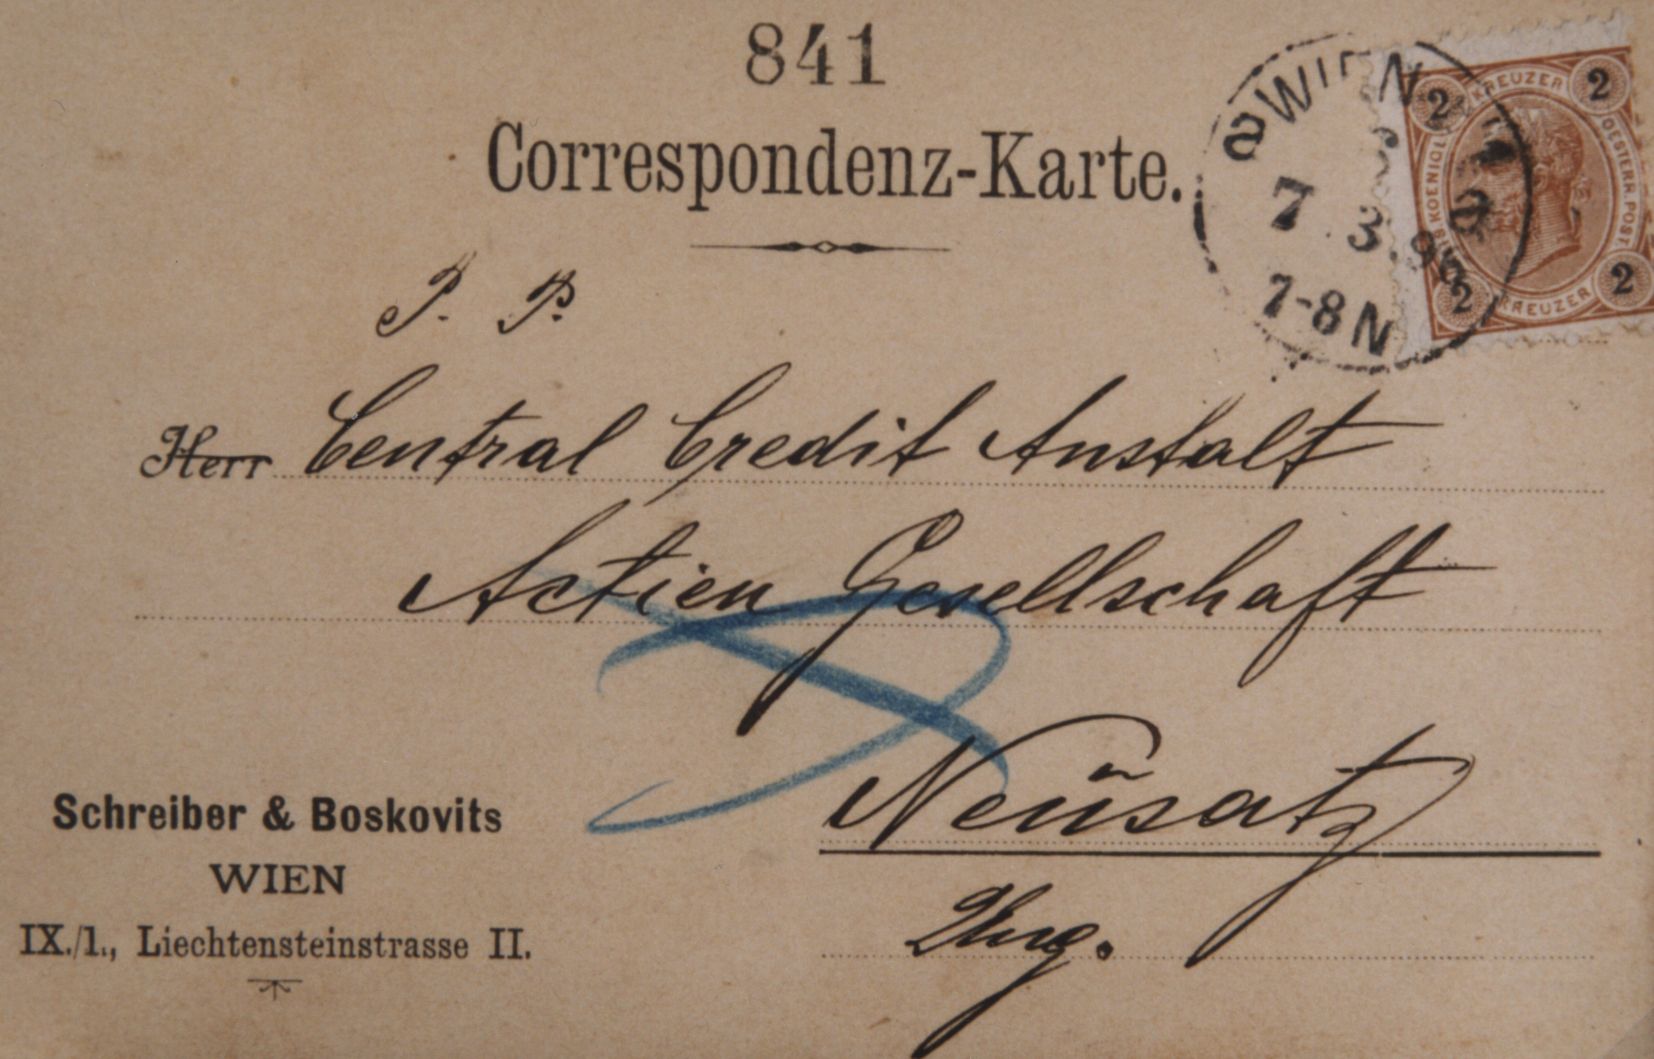 841
Correspondenz-Karte.
WIEN
7 3 95
7-8N
2 KREUZER 2
OESTERR. POST.
2 KREUZER 2
P. P.
Herr Central Credit Anstalt
Actien Gesellschaft
Neusatz
Ung.
Schreiber & Boskovits
WIEN
IX./1., Liechtensteinstrasse II.